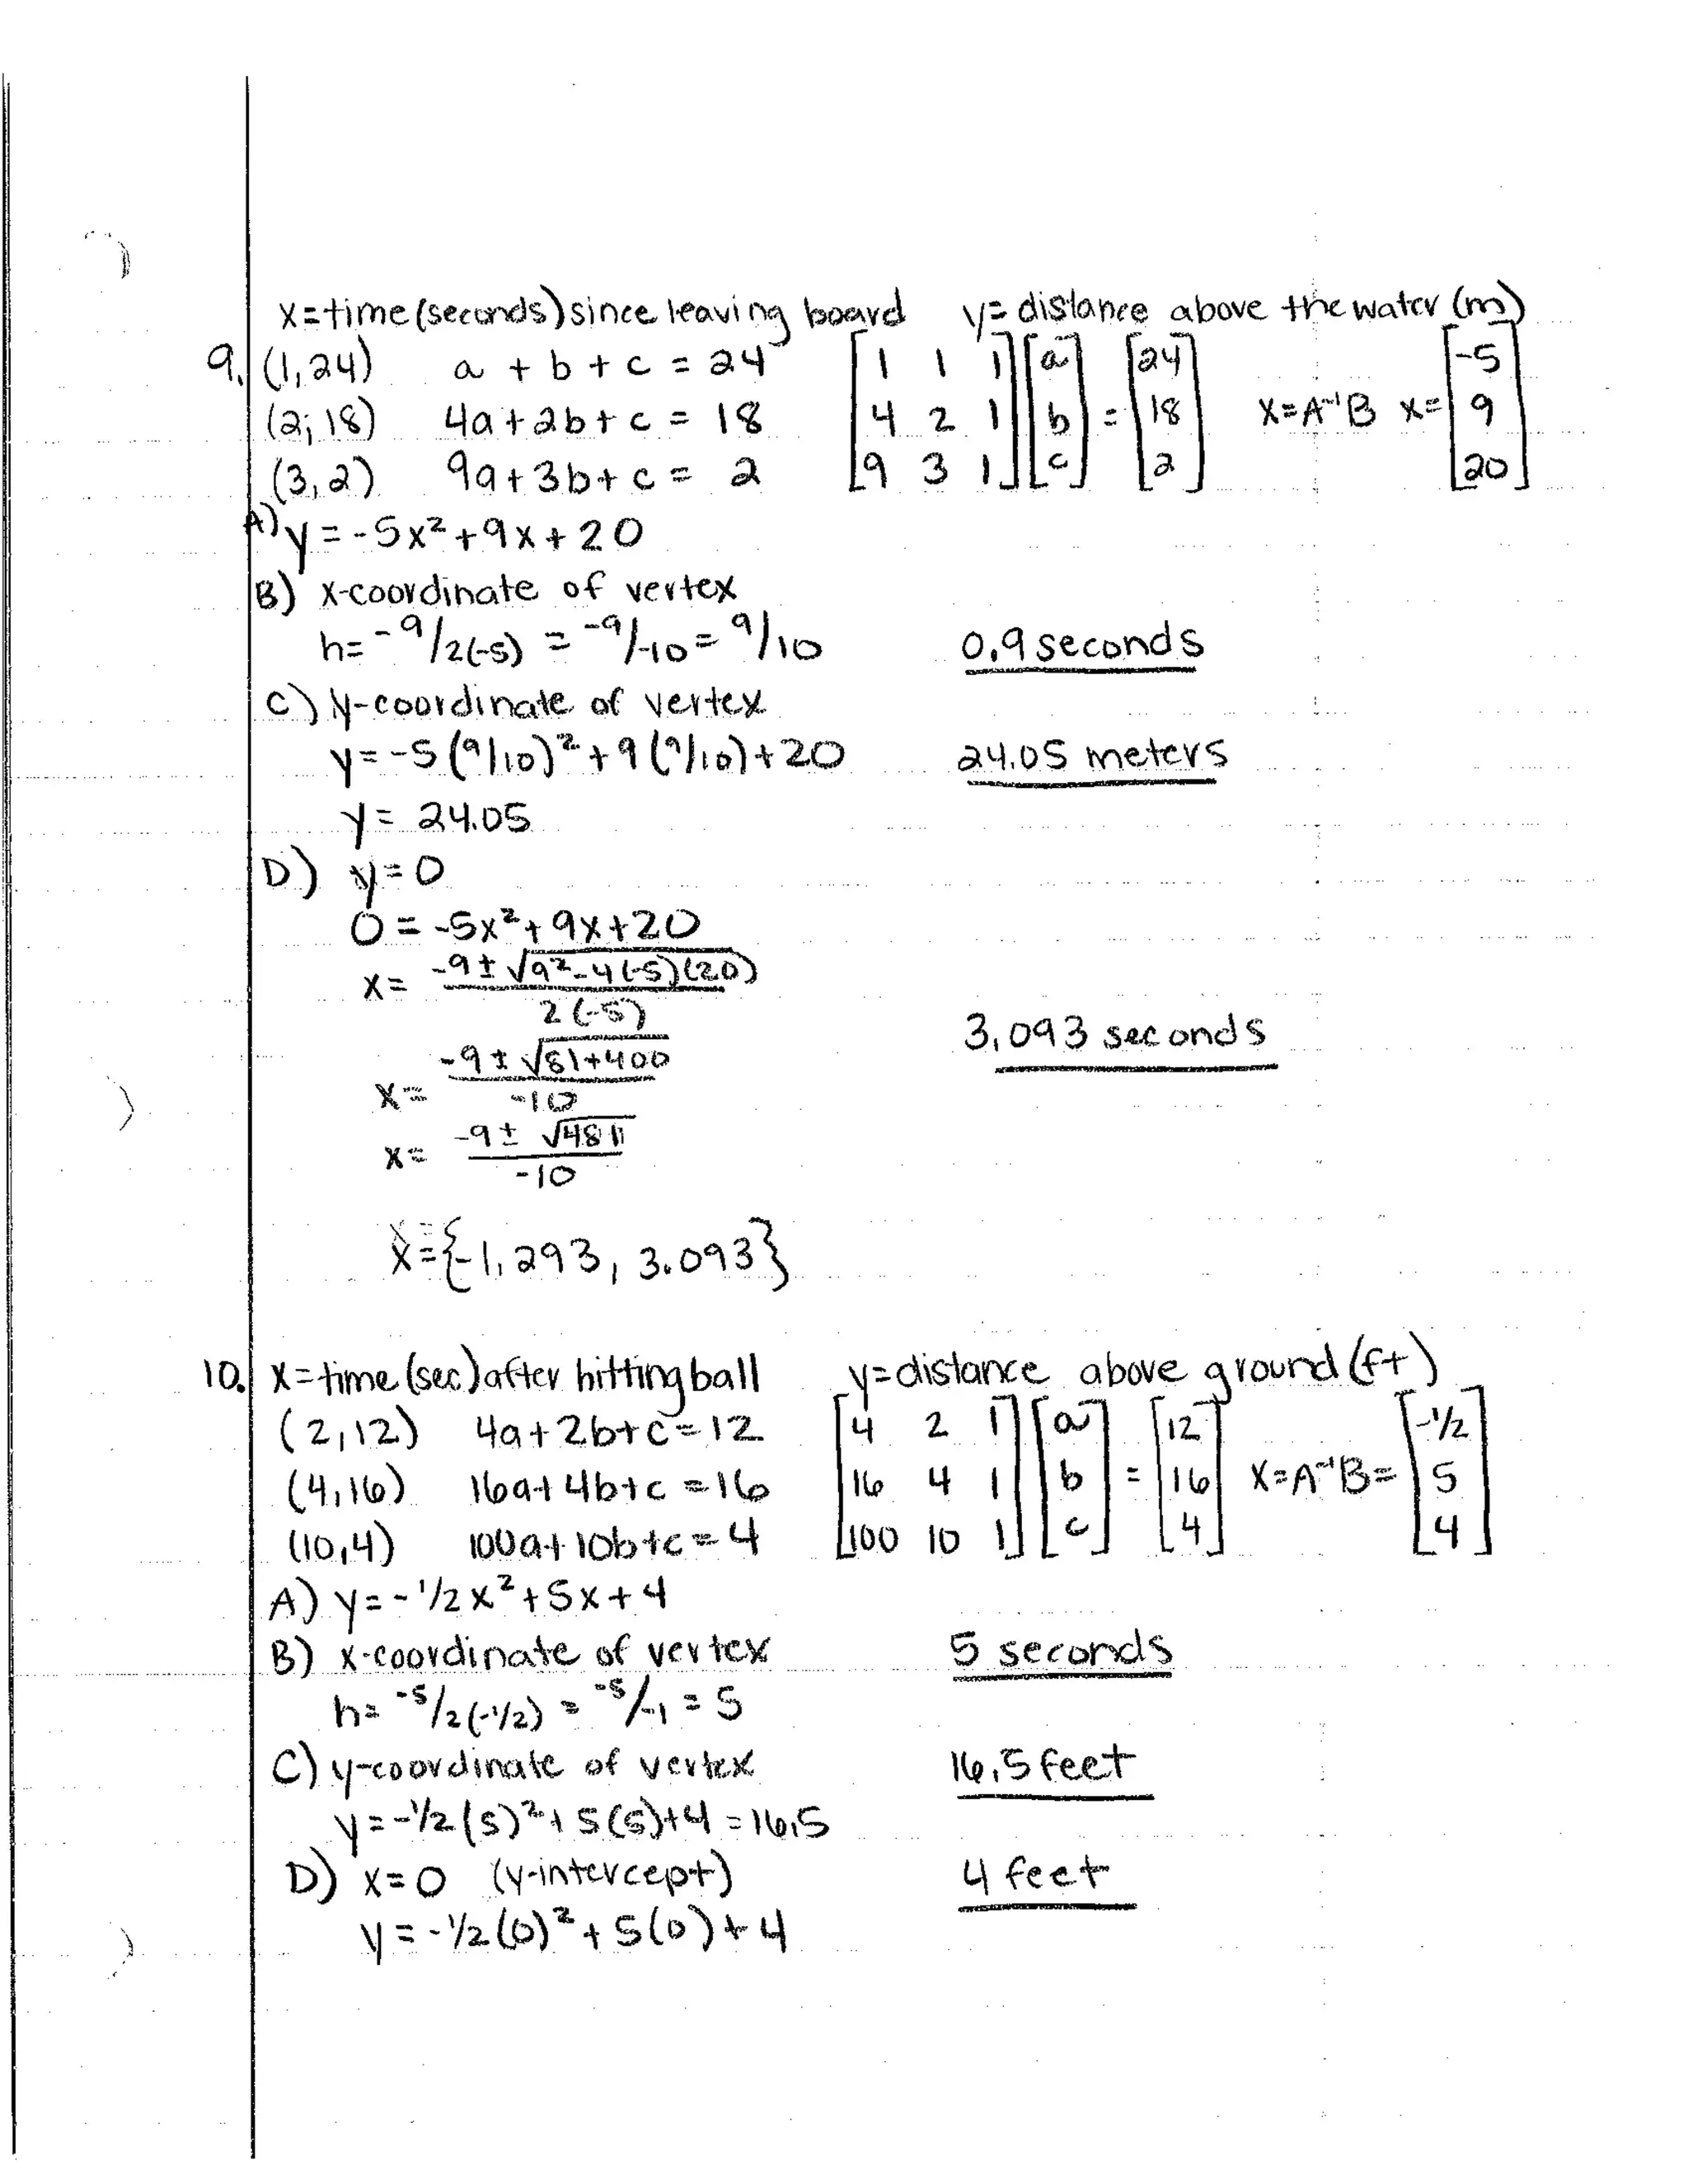 x=time(seconds)since leaving board y=distance above the water (m)
9. (1,24) a + b + c = 24 [1 1 1] [a] = [24] [-5]
(2,18) 4a+2b+c = 18 [4 2 1] [b] = [18] X=A⁻¹B X= [9]
(3,2) 9a+3b+c = 2 [9 3 1] [c] [2] [20]
A) y=-5x²+9x+20
B) x-coordinate of vertex
h= -9/2(-5) = -9/-10 = 9/10 0.9 seconds
C) y-coordinate of vertex
y=-5(9/10)²+9(9/10)+20 24.05 meters
y= 24.05
D) y=0
0=-5x²+9x+20
x= -9±√9²-4(-5)(20)
2(-5)
3.093 seconds
x= -9±√81+400
-10
x= -9±√481
-10
x={-1.293, 3.093}
10. x=time(sec)after hitting ball y=distance above ground(ft)
(2,12) 4a+2b+c=12 [4 2 1] [a] [12] [-1/2]
(4,16) 16a+4b+c=16 [16 4 1] [b] = [16] X=A⁻¹B= [5]
(10,4) 100a+10b+c=4 [100 10 1] [c] [4] [4]
A) y=-1/2x²+5x+4
B) x-coordinate of vertex 5 seconds
h= -5/2(-1/2) = -5/-1 = 5
C) y-coordinate of vertex 16.5 feet
y=-1/2(5)²+5(5)+4=16.5
D) x=0 (y-intercept) 4 feet
y=-1/2(0)²+5(0)+4